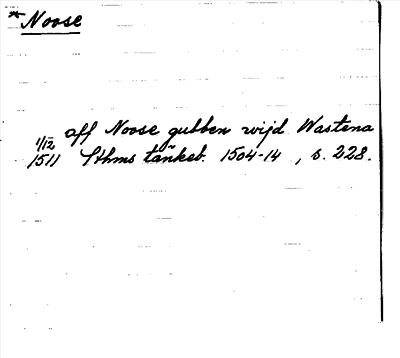 *Noose
aff Noose gubben wijd Wastena
1/12 1511 Sthms tänkeb. 1504-14, s. 228.